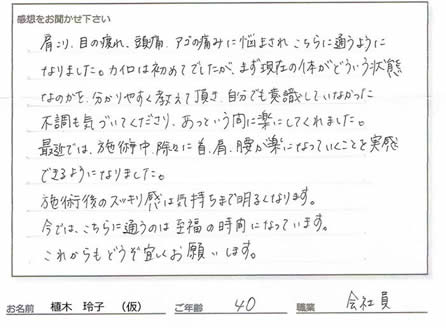 感想をお聞かせ下さい
肩こり、目の疲れ、頭痛、アゴの痛みに悩まされ、こちらに通うように
なりました。カイロは初めてでしたが、まず現在の体がどういう状態
なのかを、分かりやすく教えて頂き、自分でも意識していなかった
不調も気づいてくださり、あっという間に楽にしてくれました。
最近では、施術中、除々に首、肩、腰が楽になっていくことを実感
できるようになりました。
施術後のスッキリ感は気持ちまで明るくなります。
今では、こちらに通うのは至福の時間になっています。
これからもどうぞ宜しくお願いします。
お名前 植木 玲子 （仮） ご年齢 40 職業 会社員